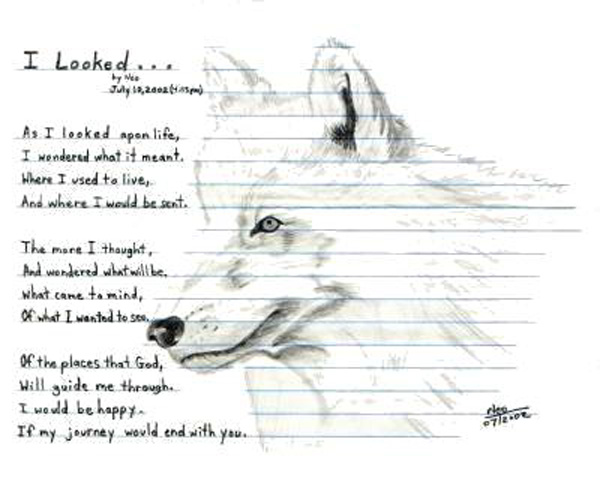 I Looked...
by Neo
July 10, 2002 (4:15pm)
As I looked apon life,
I wondered what it meant.
Where I used to live,
And where I would be sent.
The more I thought,
And wondered what will be.
What came to mind,
Of what I wanted to see.
Of the places that God,
Will guide me through.
I would be happy.
If my journey would end with you.
Neo
07/2002